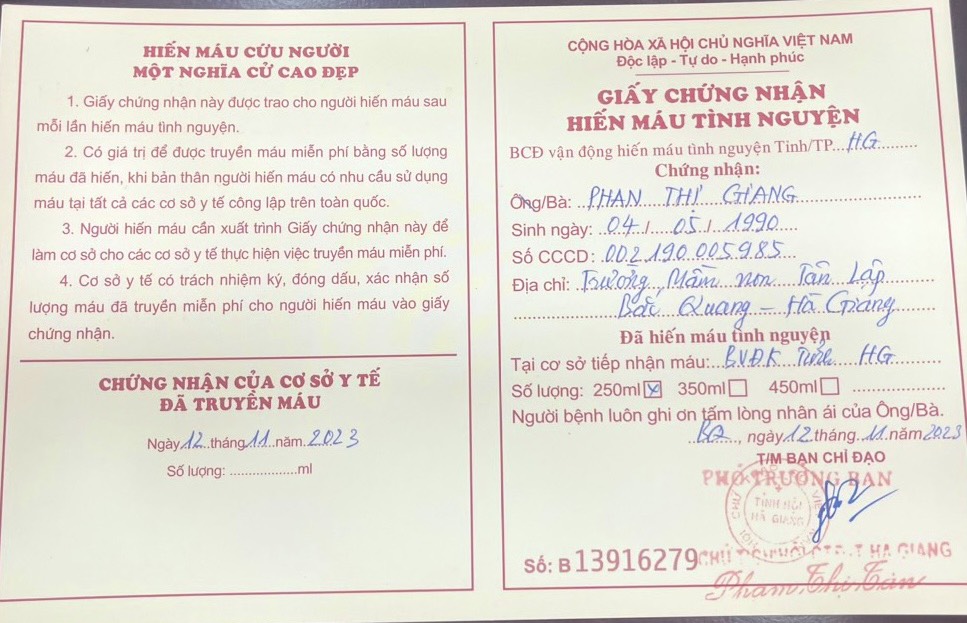 HIẾN MÁU CỨU NGƯỜI
MỘT NGHĨA CỬ CAO ĐẸP
1. Giấy chứng nhận này được trao cho người hiến máu sau
mỗi lần hiến máu tình nguyện.
2. Có giá trị để được truyền máu miễn phí bằng số lượng
máu đã hiến, khi bản thân người hiến máu có nhu cầu sử dụng
máu tại tất cả các cơ sở y tế công lập trên toàn quốc.
3. Người hiến máu cần xuất trình Giấy chứng nhận này để
làm cơ sở cho các cơ sở y tế thực hiện việc truyền máu miễn phí.
4. Cơ sở y tế có trách nhiệm ký, đóng dấu, xác nhận số
lượng máu đã truyền miễn phí cho người hiến máu vào giấy
chứng nhận.
CHỨNG NHẬN CỦA CƠ SỞ Y TẾ
ĐÃ TRUYỀN MÁU
Ngày 12 tháng 11 năm 2023
Số lượng: ..................ml
CỘNG HÒA XÃ HỘI CHỦ NGHĨA VIỆT NAM
Độc lập - Tự do - Hạnh phúc
GIẤY CHỨNG NHẬN
HIẾN MÁU TÌNH NGUYỆN
BCĐ vận động hiến máu tình nguyện Tỉnh/TP... HG
Chứng nhận:
Ông/Bà: PHAN THỊ GIANG
Sinh ngày: 04 / 05 / 1990
Số CCCD: 002190005985
Địa chỉ: Trường Mầm non Tân Lập
Bắc Quang - Hà Giang
Đã hiến máu tình nguyện
Tại cơ sở tiếp nhận máu: BVĐK Tỉnh HG
Số lượng: 250ml ☒ 350ml ☐ 450ml ☐
Người bệnh luôn ghi ơn tấm lòng nhân ái của Ông/Bà.
BQ, ngày 12 tháng 11 năm 2023
T/M BAN CHỈ ĐẠO
PHÓ TRƯỞNG BAN
TỈNH HỘI
HÀ GIANG
Số: B 13916279
CHỦ TỊCH HỘI CTĐ T HA GIANG
Phạm Thị Tân